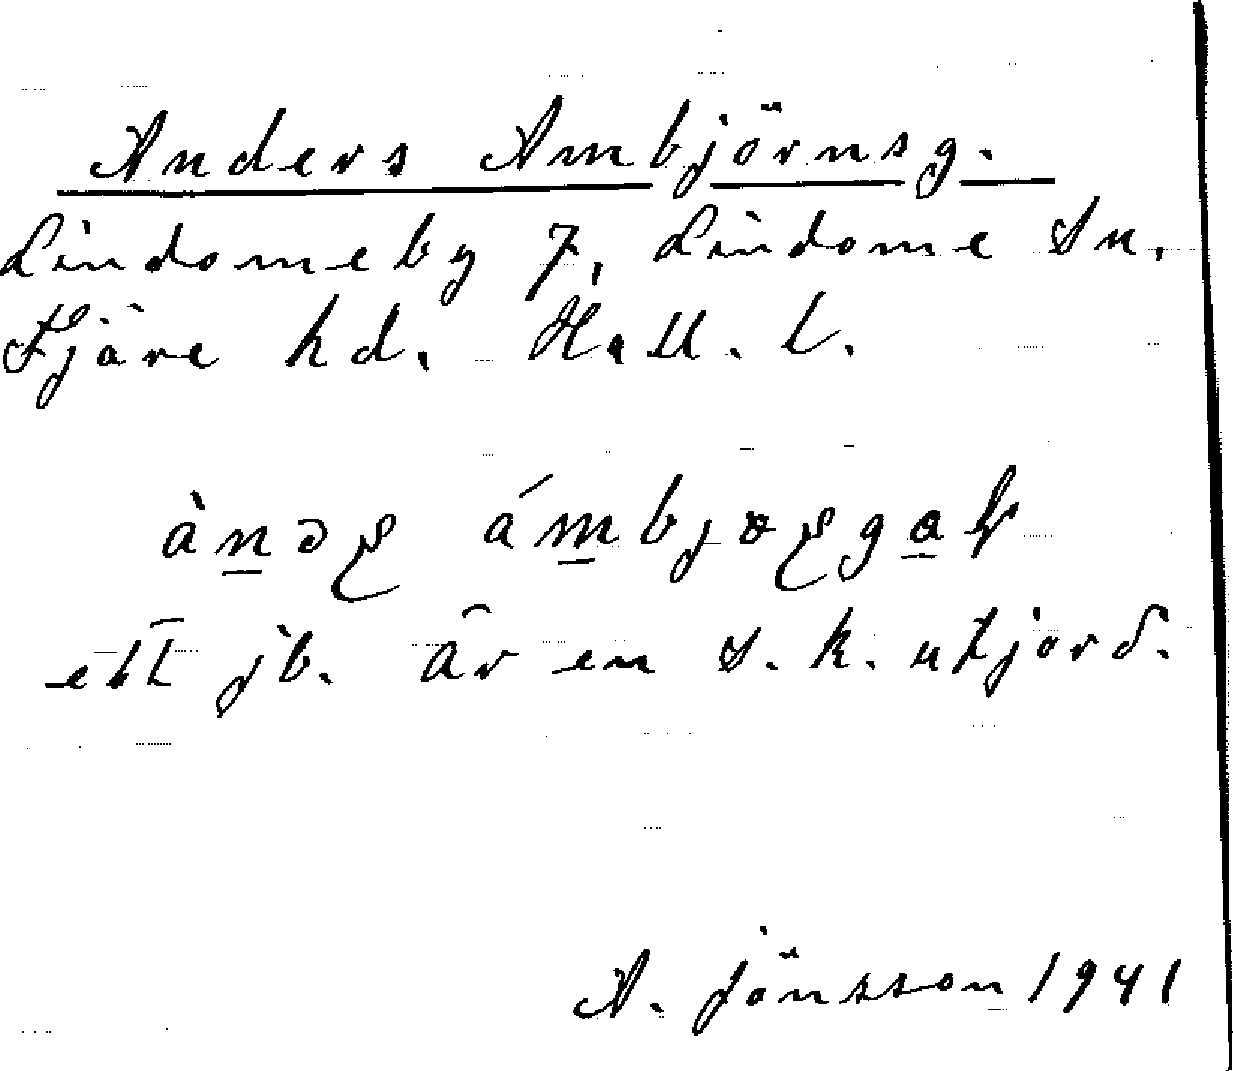 Anders Ambjörnsg.
Lindomeby 7, Lindome sn.
Fjäre hd. Hall. l.
ett jb. är en s. k. utjord.
A. Jönsson 1941